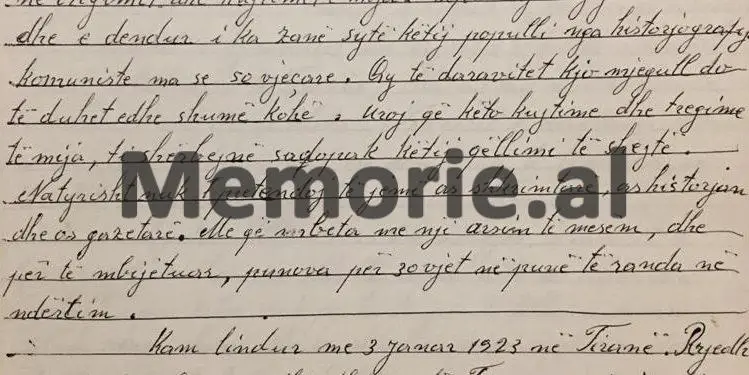 dhe e dendur i ka zanë sytë këtij populli nga historjografija
komuniste ma se sovjecare. Qy të daravitet kjo mjegull do
të duhet edhe shumë kohë. Uroj që këto kujtime dhe tregime
të mija, t'i shërbejnë sadopak këtij qëllimi të shejtë.
Natyrisht nuk pretendoj të jemi as shkrimtarë, as historjan
dhe as gazetarë. Me që mbeta me nji arsim të mesem, dhe
për të mbijetuar, punova për 30 vjet në punë të randa në
ndërtim.
Kam lindur me 3 Janar 1923 në Tiranë. Rrjedh
Memorie.al